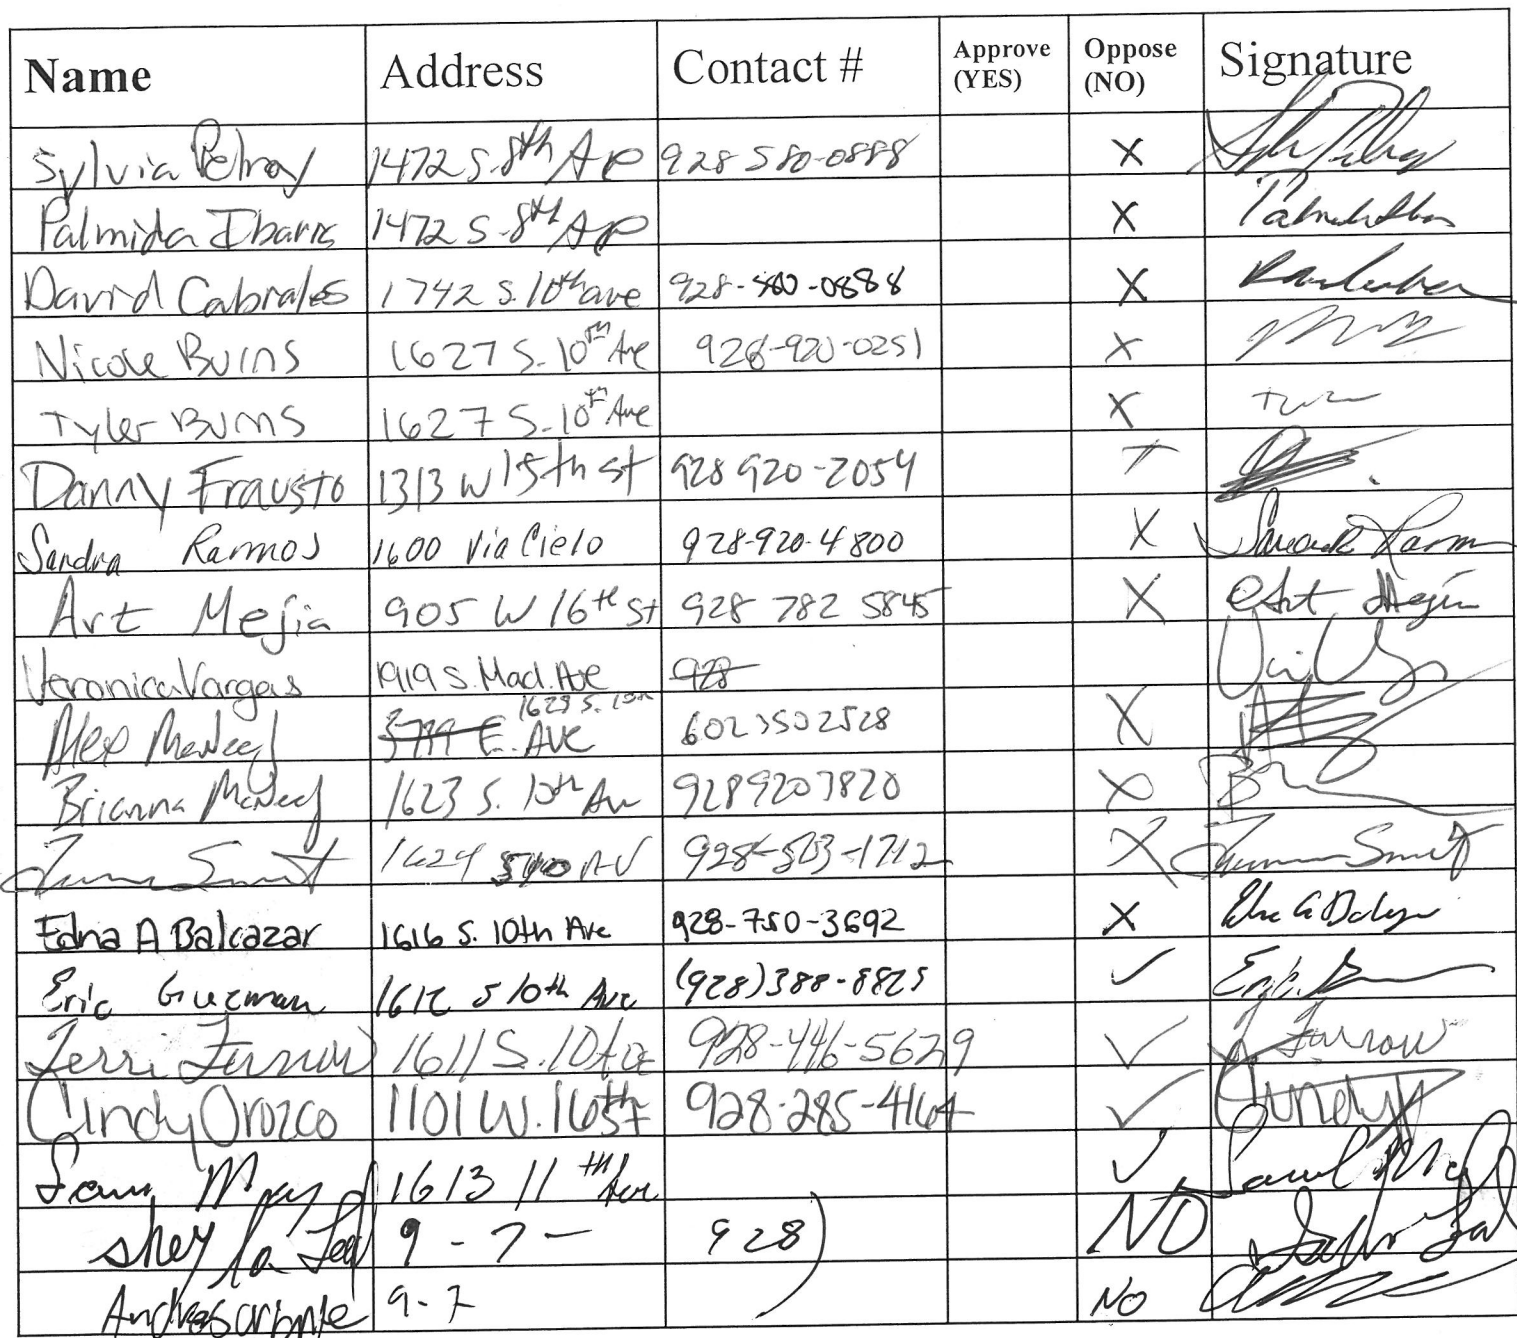 Name Address Contact # Approve (YES) Oppose (NO) Signature
Sylvia Pelroy 1472 S. 8th Ave 928 580-0888 X
Palmida Ibarra 1472 S. 8th Ave X
David Cabrales 1742 S. 10th ave 928-580-0888 X
Nicole Burns 1627 S. 10th Ave 928-920-0251 X
Tyler Burns 1627 S. 10th Ave X
Danny Frausto 1313 W 15th St 928 920-2054 X
Sandra Ramos 1600 Via Cielo 928-920-4800 X
Art Mejia 905 W 16th St 928 782 5845 X Art Mejia
Veronica Vargas 1919 S. Mad. Ave 928
Alex McNeef 1623 S. 10th AVE 6023502528 X
Brianna McNeef 1623 S. 10th Av 9289203820 X
1624 AV X Smit
Edna A Balcazar 1616 S. 10th Ave 928-750-3692 X
Eric Guzman 1612 S 10th Ave (928)388-8825 ✓
Terri Farrow 1611 S. 10 Ave 928-446-5629 ✓ Farrow
Cindy Orozco 1101 W. 16 St 928-285-4164 ✓ Cindy
1613 11th Ave ✓
9-7- 928) NO
9-7 NO